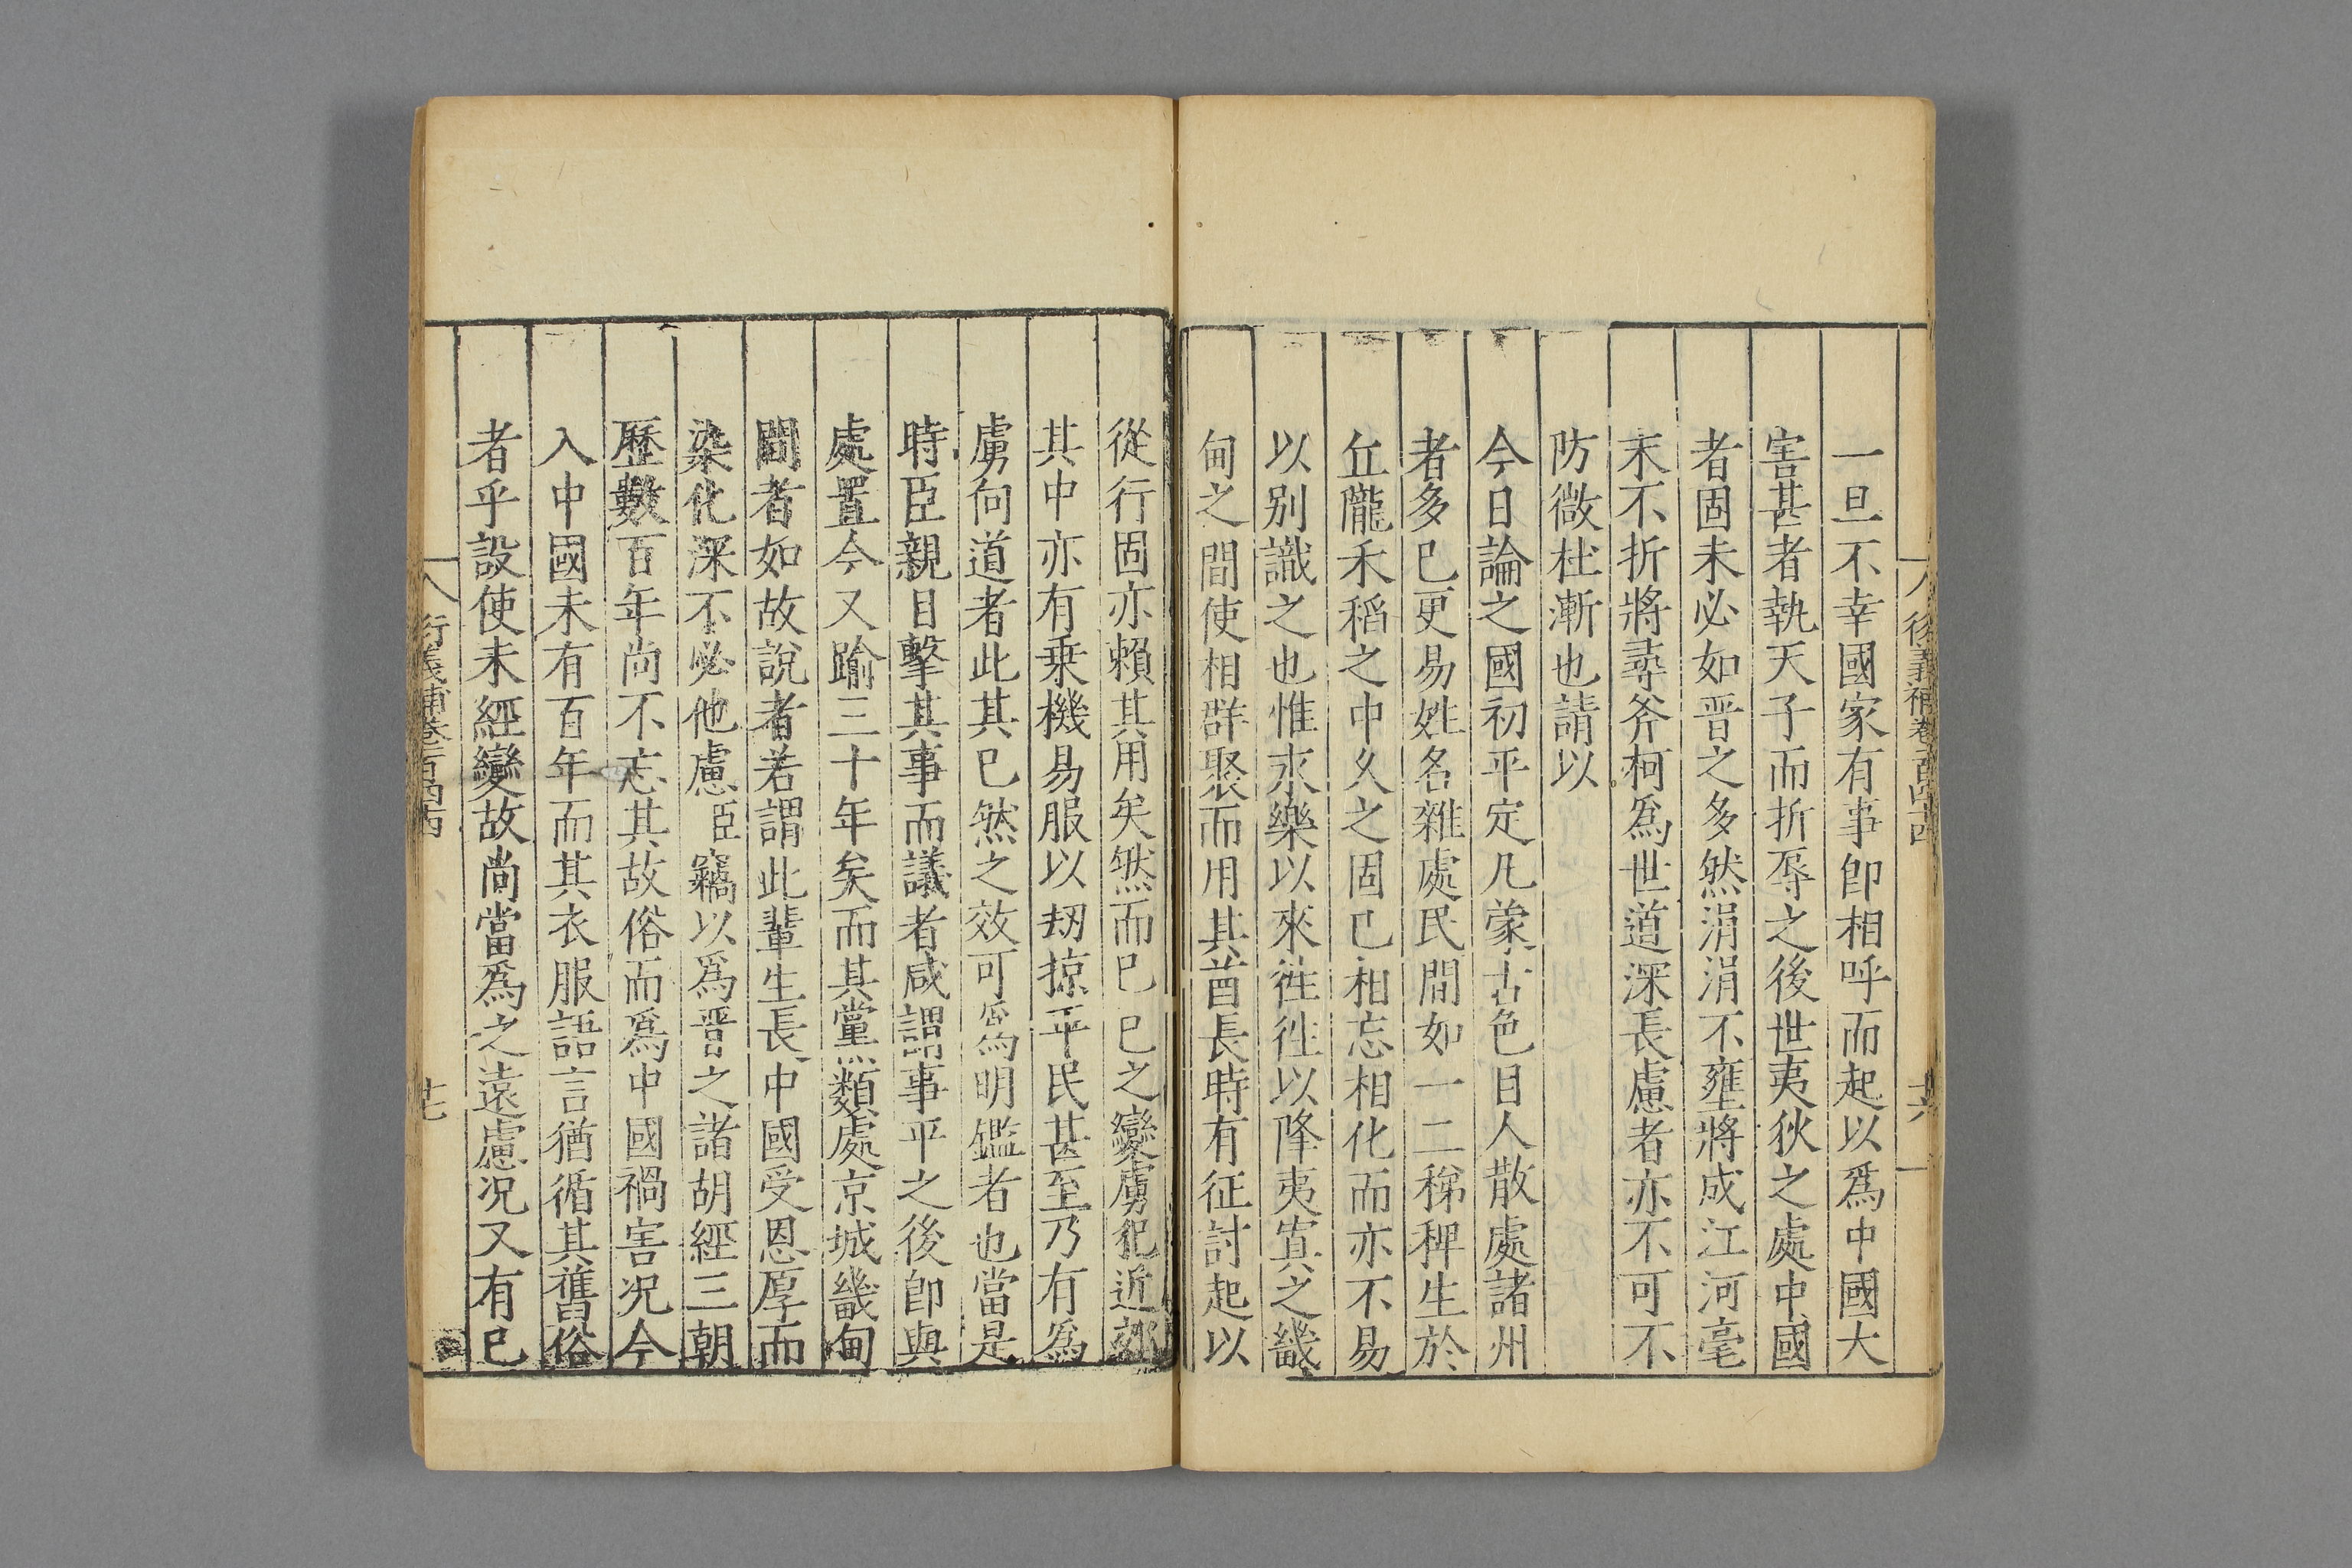 後義補卷一百四十四
六
一旦不幸國家有事卽相呼而起以爲中國大
害甚者執天子而折辱之後世夷狄之處中國
者固未必如晋之多然涓涓不壅將成江河毫
末不折將尋斧柯爲世道深長慮者亦不可不
防微杜漸也請以
今日論之國初平定凡蒙古色目人散處諸州
者多已更易姓名雜處民間如一二稊稗生於
丘隴禾稻之中久之固已相忘相化而亦不易
以别識之也惟永樂以來徃徃以降夷寘之畿
甸之間使相群聚而用其酋長時有征討起以
從行固亦賴其用矣然而已巳之變虜犯近郊
其中亦有乗機易服以刼掠平民甚至乃有爲
虜向道者此其已然之效可爲明鑑者也當是
時臣親目擊其事而議者咸謂事平之後卽與
處置今又踰三十年矣而其黨類處京城畿甸
間者如故說者若謂此輩生長中國受恩厚而
染化深不必他慮臣竊以爲晋之諸胡經三朝
歷數百年尚不忘其故俗而爲中國禍害况今
入中國未有百年而其衣服語言猶循其舊俗
者乎設使未經變故尚當爲之遠慮况又有已
衍義補卷一百四十四
廿七